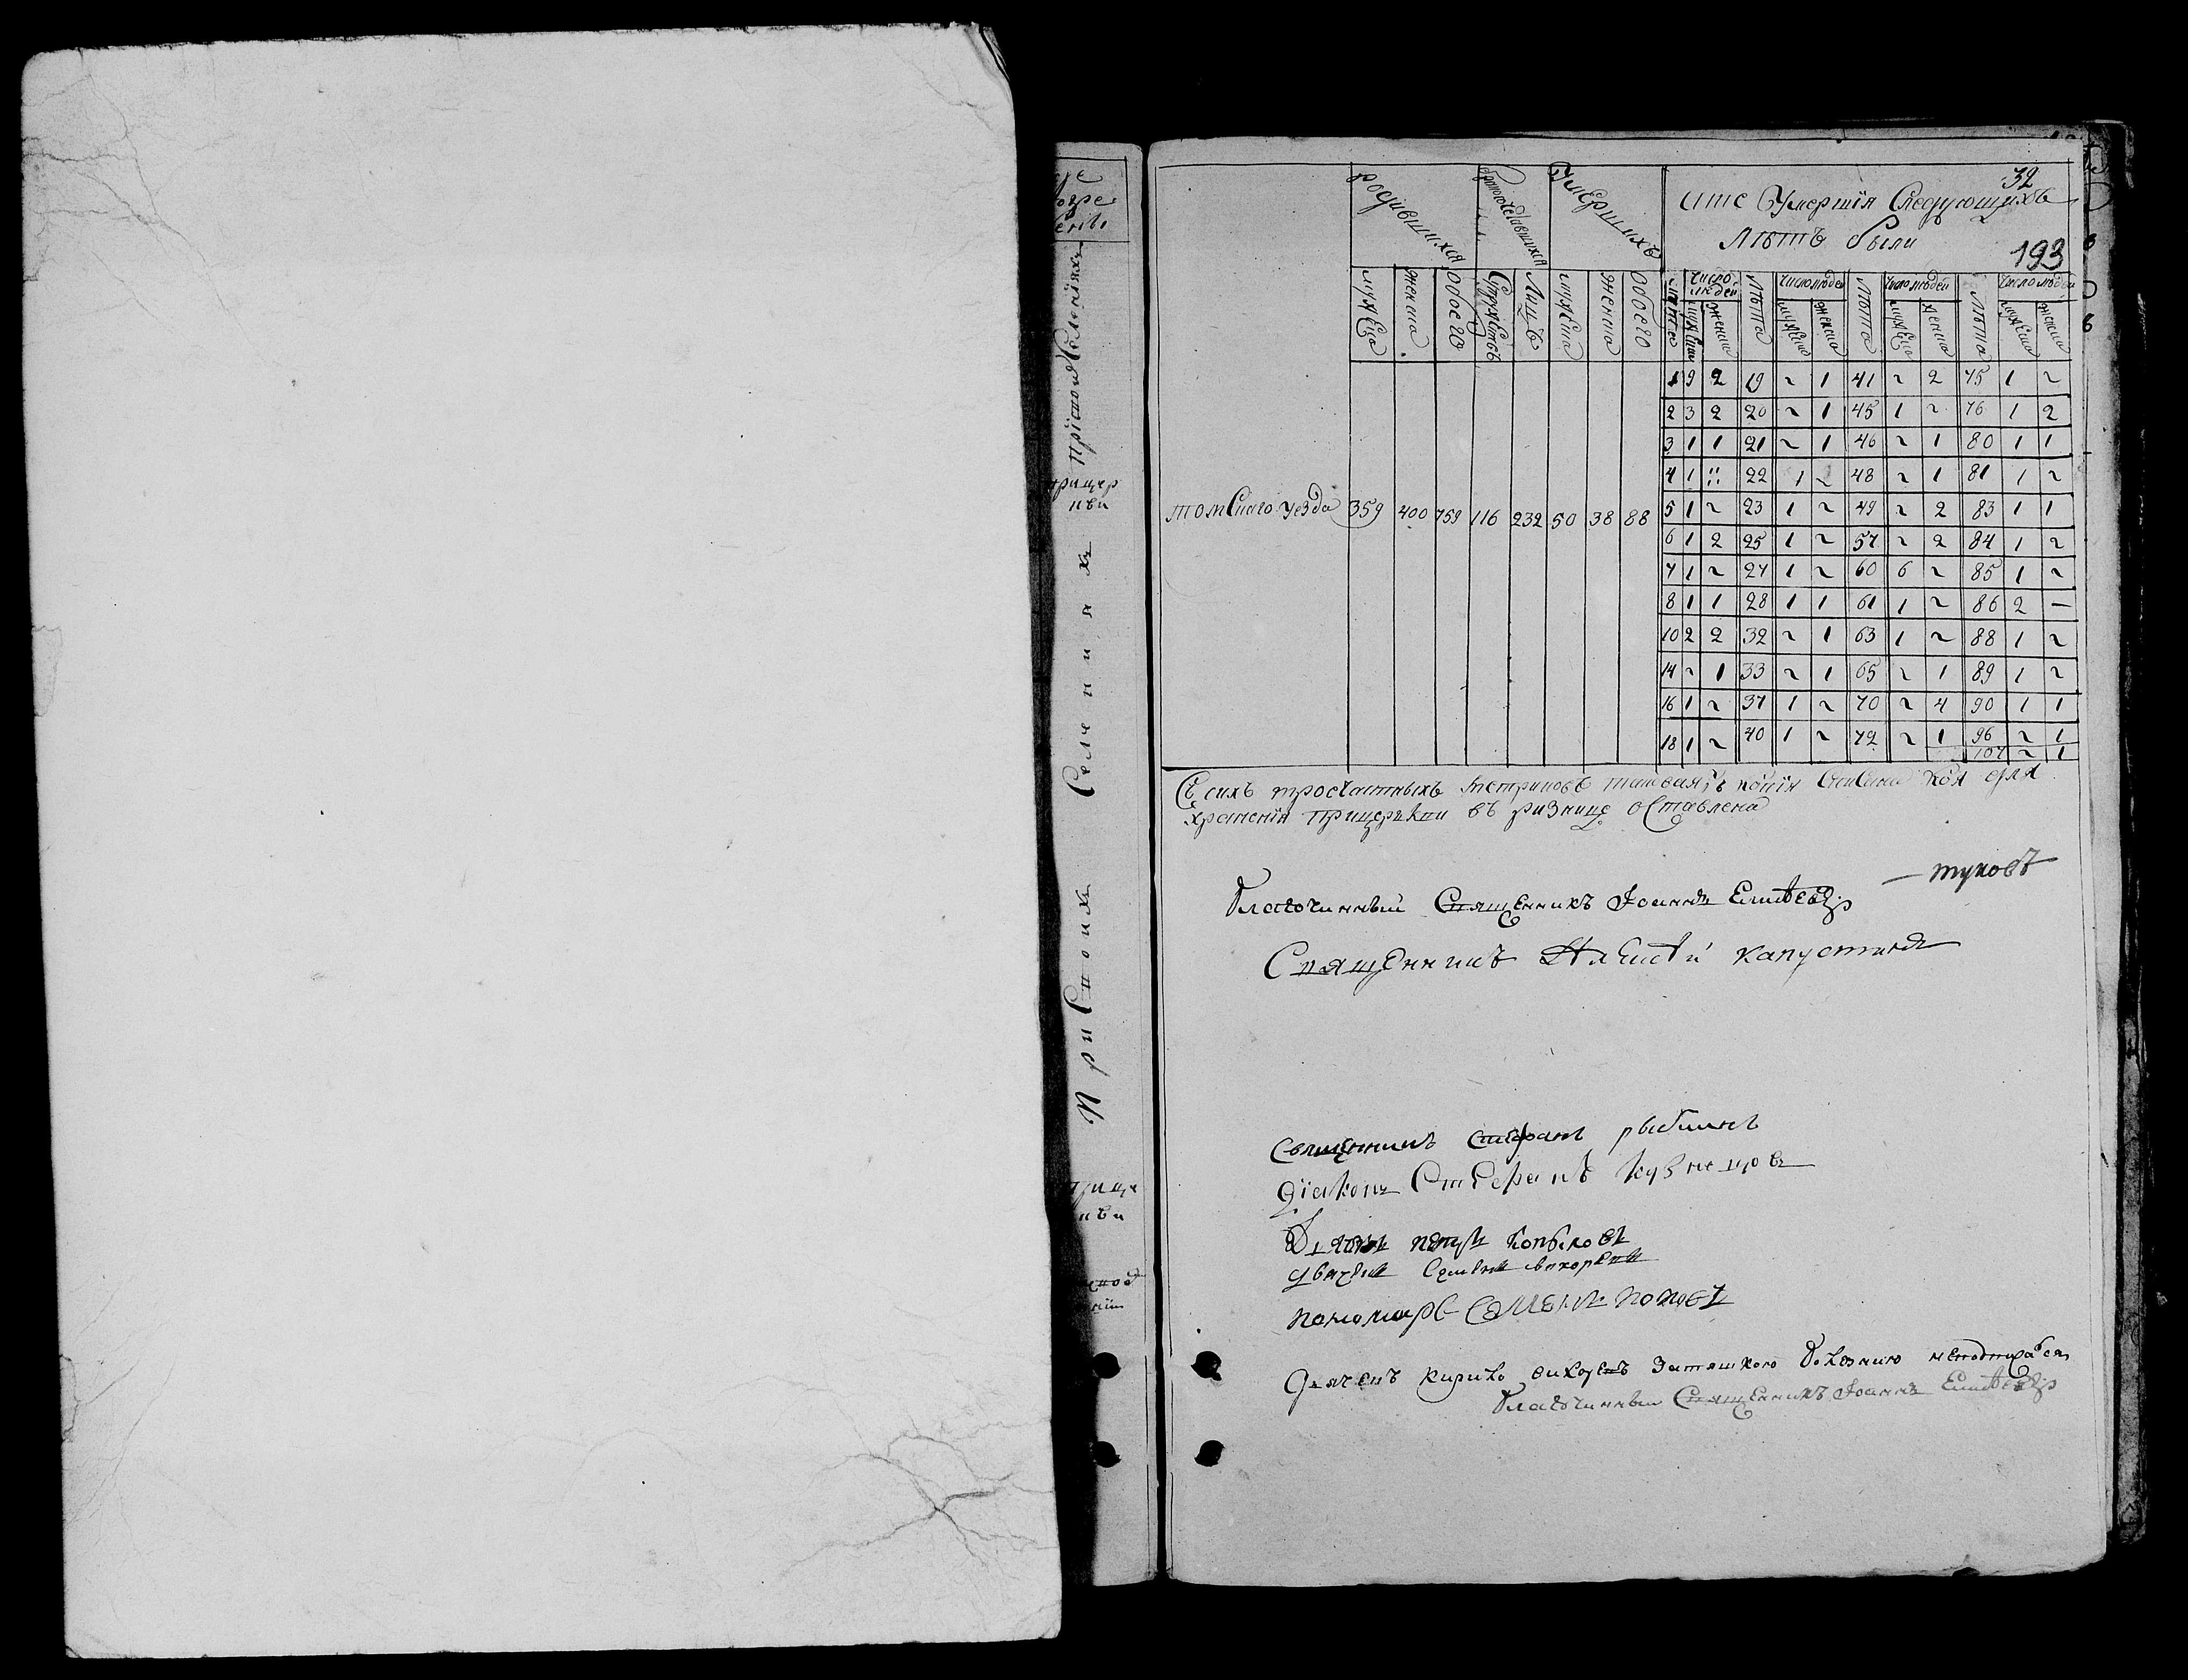 32
193
родившихся
бракосочетавшихся
умершихъ
а те умершiя следующихъ
лѣтъ были
мужеска
женска
обоего
супружествъ
лицъ
мужеска
женска
обоего
лѣта число людей лѣта число людей лѣта число людей лѣта число людей
мужеска женска мужеска женска мужеска женска мужеска женска
1 9 2 19 ~ 1 41 ~ 2 75 1 ~
2 3 2 20 ~ 1 45 1 ~ 76 1 2
3 1 1 21 ~ 1 46 ~ 1 80 1 1
4 1 :: 22 1 ~ 48 ~ 1 81 1 ~
томскаго уезда 359 400 759 116 232 50 38 88
5 1 ~ 23 1 ~ 49 ~ 2 83 1 1
6 1 2 25 1 ~ 57 ~ 2 84 1 ~
7 1 ~ 27 1 ~ 60 6 ~ 85 1 ~
8 1 1 28 1 1 61 1 ~ 86 2 —
10 2 2 32 ~ 1 63 1 ~ 88 1 ~
14 ~ 1 33 ~ 1 65 ~ 1 89 1 ~
16 1 ~ 37 1 ~ 70 ~ 4 90 1 1
18 1 ~ 40 1 ~ 72 ~ 1 96 ~ 1
107 ~ 1
Съ сихъ троечастныхъ метриковъ таковая ѣ копiя списана коя для
хранения прицеркви въ ризнице оставлена
благочинный Священникъ Iоаннъ Елисѣевъ
Священникъ Алексѣй капустинъ
священникъ стефанъ рыбкинъ
дiаконъ Стефанъ кузнецовъ
Дьячекъ петръ копыловъ
пономарь семенъ поповъ
Дьячекъ кирило вихоревъ затяшкою болезнию неподписався
благочинный Священникъ Iоаннъ Елисѣевъ